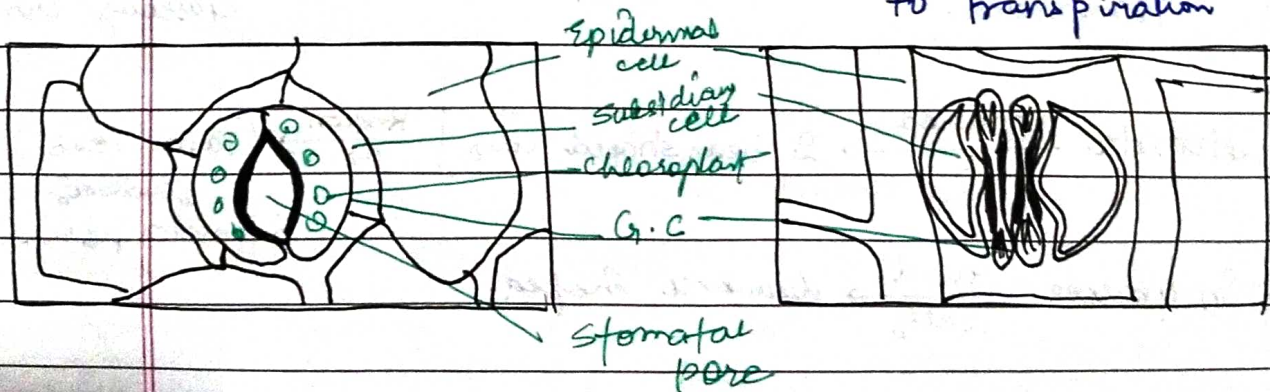 to transpiration
Epidermal
cell
Subsidiary
cell
Chloroplast
G.C
Stomatal
pore